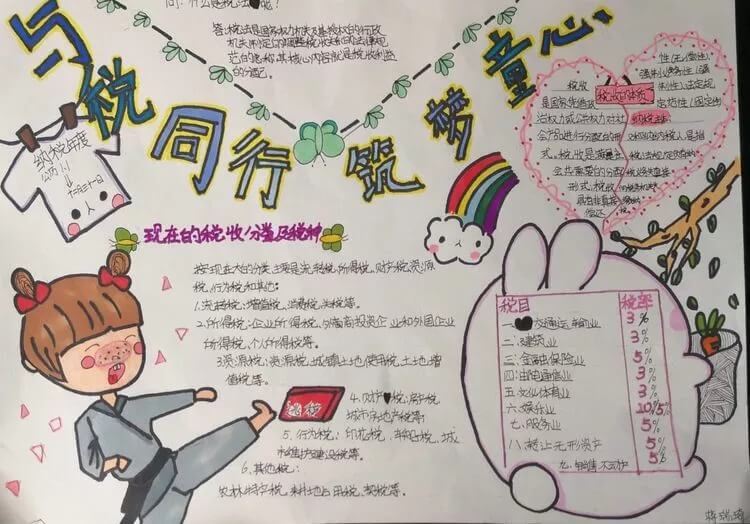 与税同行 筑梦童心
问：什么是税法
答：税法是国家权力机关及其授权的行政
机关制定的调整税收关系的法律规
范的总称，其核心内容就是税收利益
的分配。
纳税年度
公历
1月1日
税收的本质
税收
是国家凭借政
治权力或公共权力对社
会产品进行分配的形
式。税收是满足社
会公共需要的分配
形式；税收
具有非直接
偿还
性（无偿性）
强制义务性（强
制性）法定规
范性（固定性）
纳税主体：
现在的税收分类及税种
按现在大的分类，主要是流转税、所得税、财产税、资源
税、行为税和其他：
1.流转税：增值税、消费税、关税等。
2.所得税：企业所得税、外商投资企业和外国企业
所得税、个人所得税等。
3.资源税：资源税、城镇土地使用税、土地增
值税等。
4.财产税：房产税、
城市房地产税等
5.行为税：印花税、车船税、城
市维护建设税等。
6.其他税：
农林特产税、耕地占用税、契税等。
逃税
税目 税率
一、交通运输业 3%
二、建筑业 3%
三：金融保险业 5%
四：邮电通信业 3%
五：文化体育业 3%
六：娱乐业 20%5%
七：服务业 5%
八：转让无形资产 5%
九：销售不动产 5%